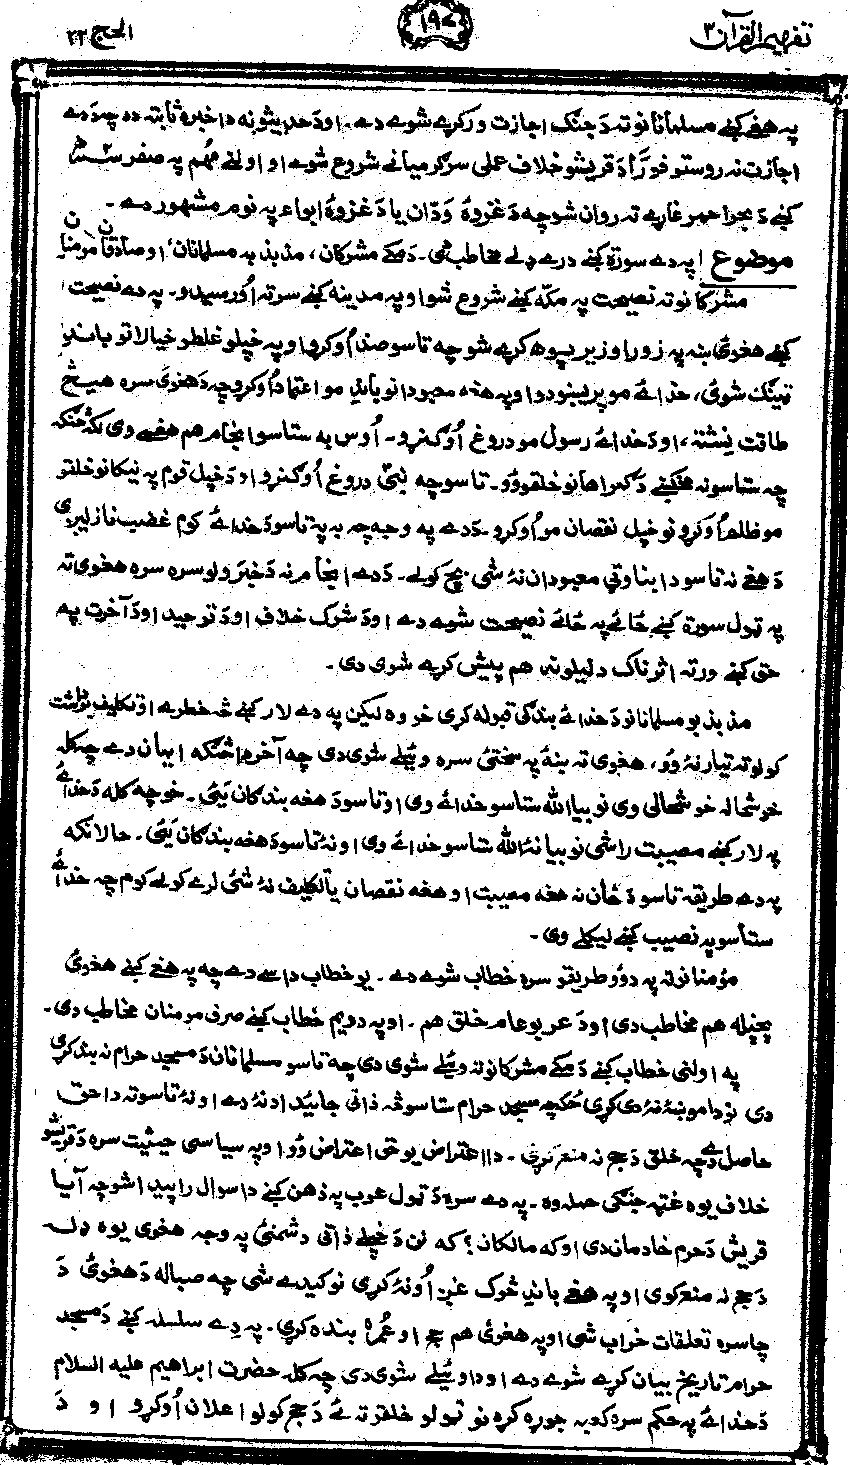 تفهيم القرآن ۳
۱۹۷
الحج ۲۲
په هغے کښے مسلمانانو ته دَ جنګ اجازت ورکړے شوے دے۔ اودَ حديثونه دا خبره ثابته ده چه دَ دے
اجازت نه روستو فورًا دَ قريشو خلاف عملی سرګرميانے شروع شوے او اولنے مُهم په صفر سنه
کښے دَ بحراحمر غاړے ته روان شو چه دَ غزوهٔ وَدّان يا دَ غزوهٔ ابواء په نوم مشهور دے۔
موضوع | په دے سورة کښے درے ډلے مخاطب شی۔ دَ مکے مشرکان، مذبذب مسلمانان او صادقان مومنان
مشرکانو ته نصيحت په مکّه کښے شروع شو او په مدينه کښے سر ته اُورسيدو۔ په دے نصيحت
کښے هغوئ ته په زور او زير پوهه کړے شو چه تاسو ضد اُوکړو او په خپلو غلطو خيالاتو باندِ
ټينګ شوئ، خدائے مو پريښودو او په هغه معبودانو باندِ مو اعتماد اُوکړو چه دَ هغوئ سره هيڅ
طاقت نشته، اودَ خدائے رسول مو دروغ اُوګنړو۔ اُوس به ستاسو انجام هم هغسے وی لکه څنګه
چه ستاسو نه مخکښے دَ ګمراهانو خلقو وُو۔ تاسو چه نبیؐ دروغ اُوګنړو او دَ خپل قوم په نيکانو خلقو
مو ظلم اُوکړو نو خپل نقصان مو اُوکړو۔ دَ دے په وجه چه به په تاسو دَ خدائے کوم غضب نازليږی
دَ هغے نه تاسو دا بناوټی معبودان نهٔ شی بچ کولے۔ دَ دے انجام نه دَ خبرَولو سره سره هغوی ته
په ټول سورة کښے ځائے په ځائے نصيحت شوے دے اودَ شرک خلاف اودَ توحيد اودَ آخرت په
حق کښے ورته اثرناک دليلونه هم پيش کړے شوی دی۔
مذبذبو مسلمانانو دَ خدائے بندګی قبوله کړی خو وه ليکن په دے لار کښے څه خطرے او تکليفونه برداشت
کولو ته تيار نهٔ وُو، هغوی ته ښهٔ په سختئ سره وئيلے شوی دی چه آخر دا څنګه ايمان دے چه کله
خوشحاله خوشحالی وی نو بيا الله ستاسو خدائے وی او تاسو دَ هغه بندګان يئ۔ خو چه کله دَ خدائے
په لار کښے مصيبت راشی نو بيا نهٔ الله ستاسو خدائے وی او نهٔ تاسو دَ هغه بندګان يئ۔ حالانکه
په دے طريقه تاسو دَ ځان نه هغه مصيبت او هغه نقصان يا تکليف نهٔ شئ لرے کولے کوم چه خدائے
ستاسو په نصيب کښے ليکلے وی۔
مؤمنانو ته په دوؤ طريقو سره خطاب شوے دے۔ يو خطاب داسے دے چه په هغے کښے هغوئ
پخپله هم مخاطب دی اودَ عربو عام خلق هم۔ او په دويم خطاب کښے صرف مومنان مخاطب دی۔
په اولنی خطاب کښے دَ مکے مشرکانو ته وئيلے شوی دی چه تاسو مسلمانان دَ مسجد حرام نه بند کړی
دی نو دا مو ښهٔ نهٔ دی کړی ځکه چه مسجد حرام ستاسو څه ذاتی جائيداد نهٔ دے او نهٔ تاسو ته دا حق
حاصل دے چه خلق دَ حج نه منع کړئ۔ دا اعتراض يو حق اعتراض وُو او په سياسی حيثيت سره دَ قريشو
خلاف يوه غټه جنګی حمله وه۔ په دے سره دَ ټول عرب په ذهن کښے دا سوال راپيدا شو چه آيا
قريش دَ حرم خادمان دی او که مالکان؟ که نن دَ خپلے ذاتی دشمنئ په وجه هغوی يوه ډله
دَ حج نه منع کوی او په هغے باندِ څوک غږ اُو نهٔ کړی نو کيدے شی چه صباله دَ هغوئ دَ
چا سره تعلقات خراب شی او په هغوئ هم حج او عُمره بنده کړی۔ په دِے سلسله کښے دَ مسجد
حرام تاريخ بيان کړے شوے دے او دا وئيلے شوی دی چه کله حضرت ابراهيم عليه السلام
دَ خدائے په حکم سره کعبه جوړه کړه نو ټولو خلقو ته ئے دَ حج کولو اعلان اُوکړو او دَ